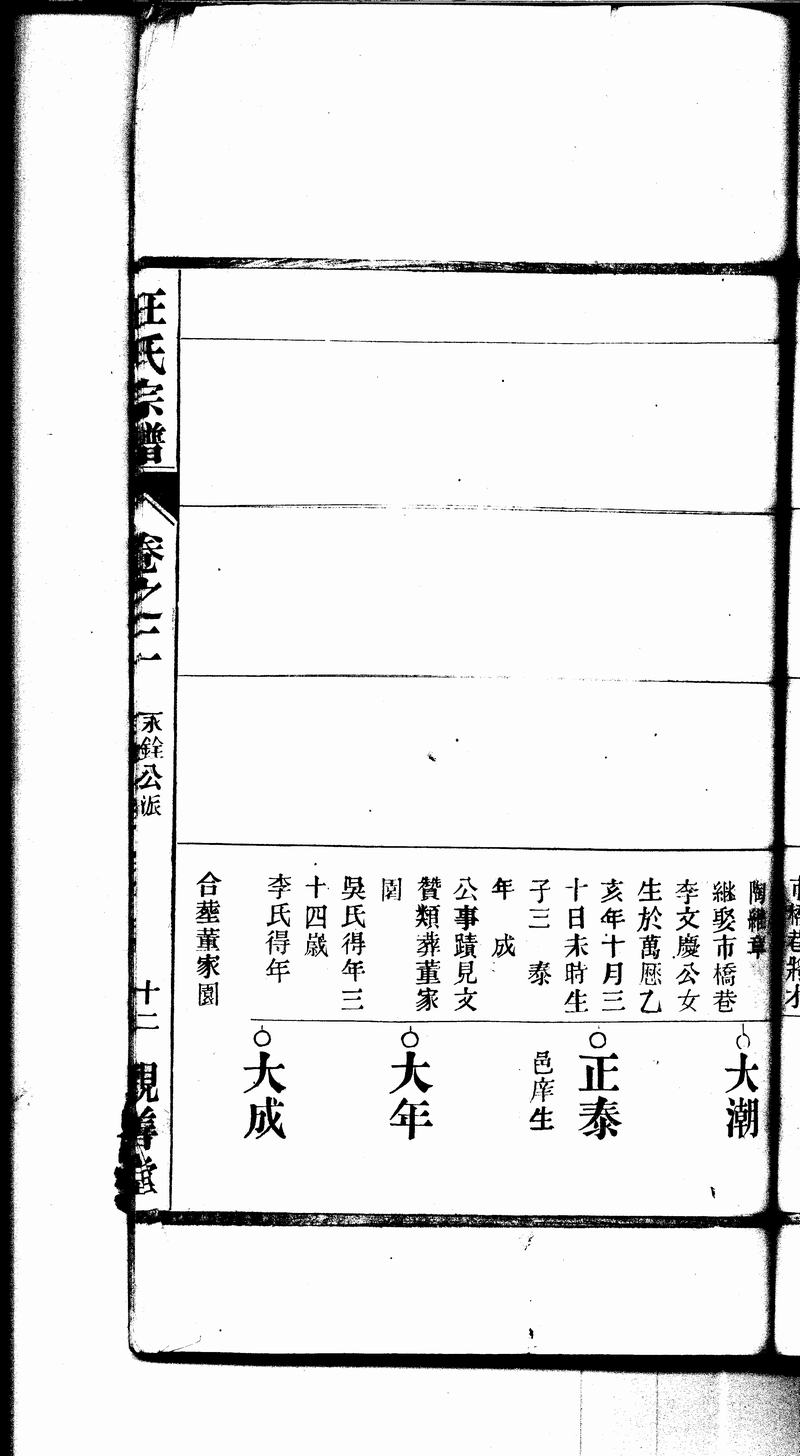 繼娶市橋巷
李文慶公女
生於萬厯乙
亥年十月三
十日未時生
子三 泰
年 成
公事蹟見文
贊類葬董家
園
吳氏得年三
十四歲
李氏得年
合塟董家園
大潮
正泰
邑庠生
大年
大成
汪氏宗譜
卷之二
永銓公派
十二
親善堂